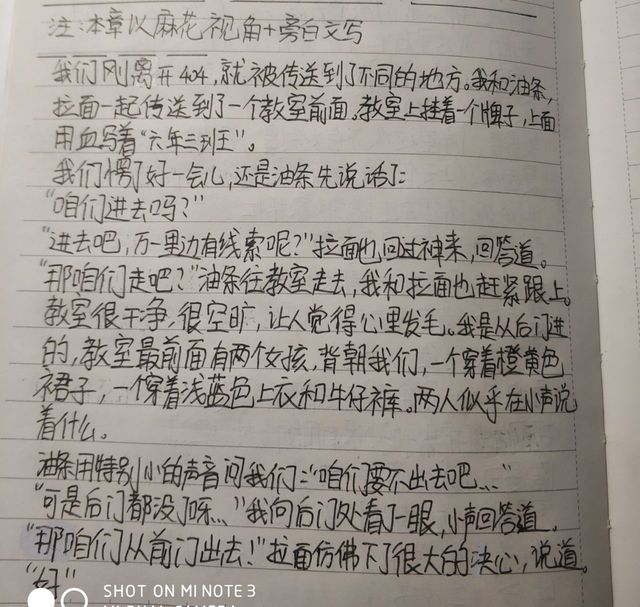 注:本章以麻花视角+旁白文写
我们刚离开404,就被传送到了不同的地方。我和油条,
拉面一起传送到了一个教室前面。教室上挂着一个牌子,上面
用血写着“六年三班”。
我们愣了好一会儿,还是油条先说话了:
“咱们进去吗?”
“进去吧,万一里边有线索呢?”拉面也回过神来,回答道。
“那咱们走吧?”油条往教室走去,我和拉面也赶紧跟上。
教室很干净,很空旷,让人觉得心里发毛。我是从后门进
的,教室最前面有两个女孩,背朝我们,一个穿着橙黄色
裙子,一个穿着浅蓝色上衣和牛仔裤。两人似乎在小声说
着什么。
油条用特别小的声音问我们:“咱们要不出去吧...”
“可是后门都没了呀...”我向后门处看了一眼,小声回答道。
“那咱们从前门出去!”拉面仿佛下了很大的决心,说道。
“好”
SHOT ON MI NOTE 3